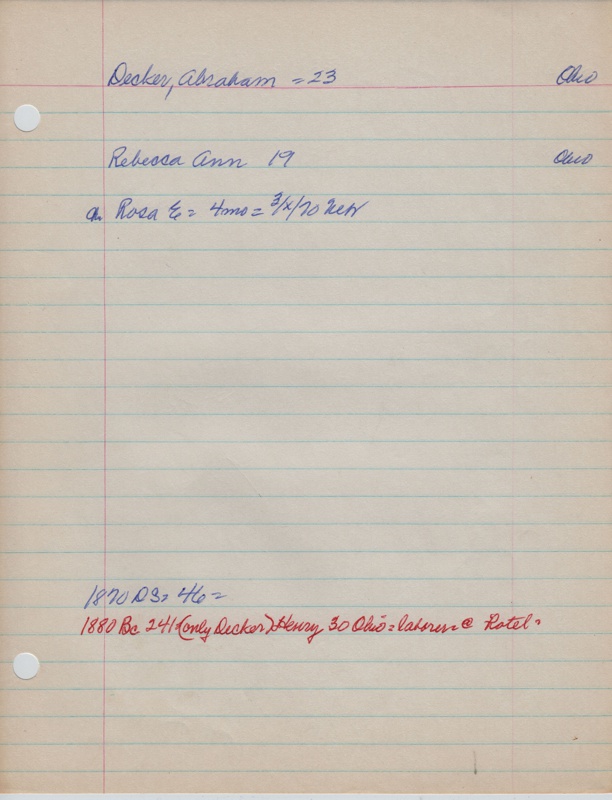 Decker, Abraham = 23 Ohio
Rebecca Ann 19 Ohio
a. Rosa E = 4mo = 3/x/70 Nebr
1870 DS= 46=
1880 Bc 241 (only Decker) Henry 30 Ohio = laborer @ Hotel =